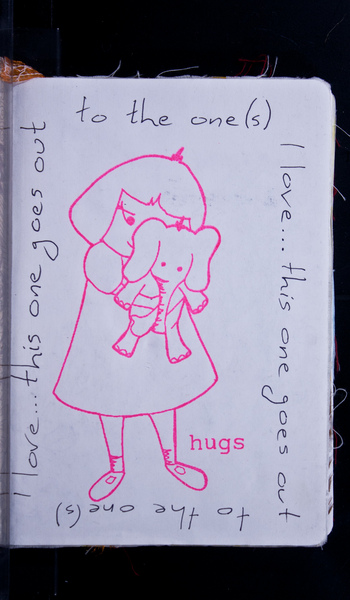 to the one(s)
I love... this one goes out
to the one(s)
I love... this one goes out
hugs